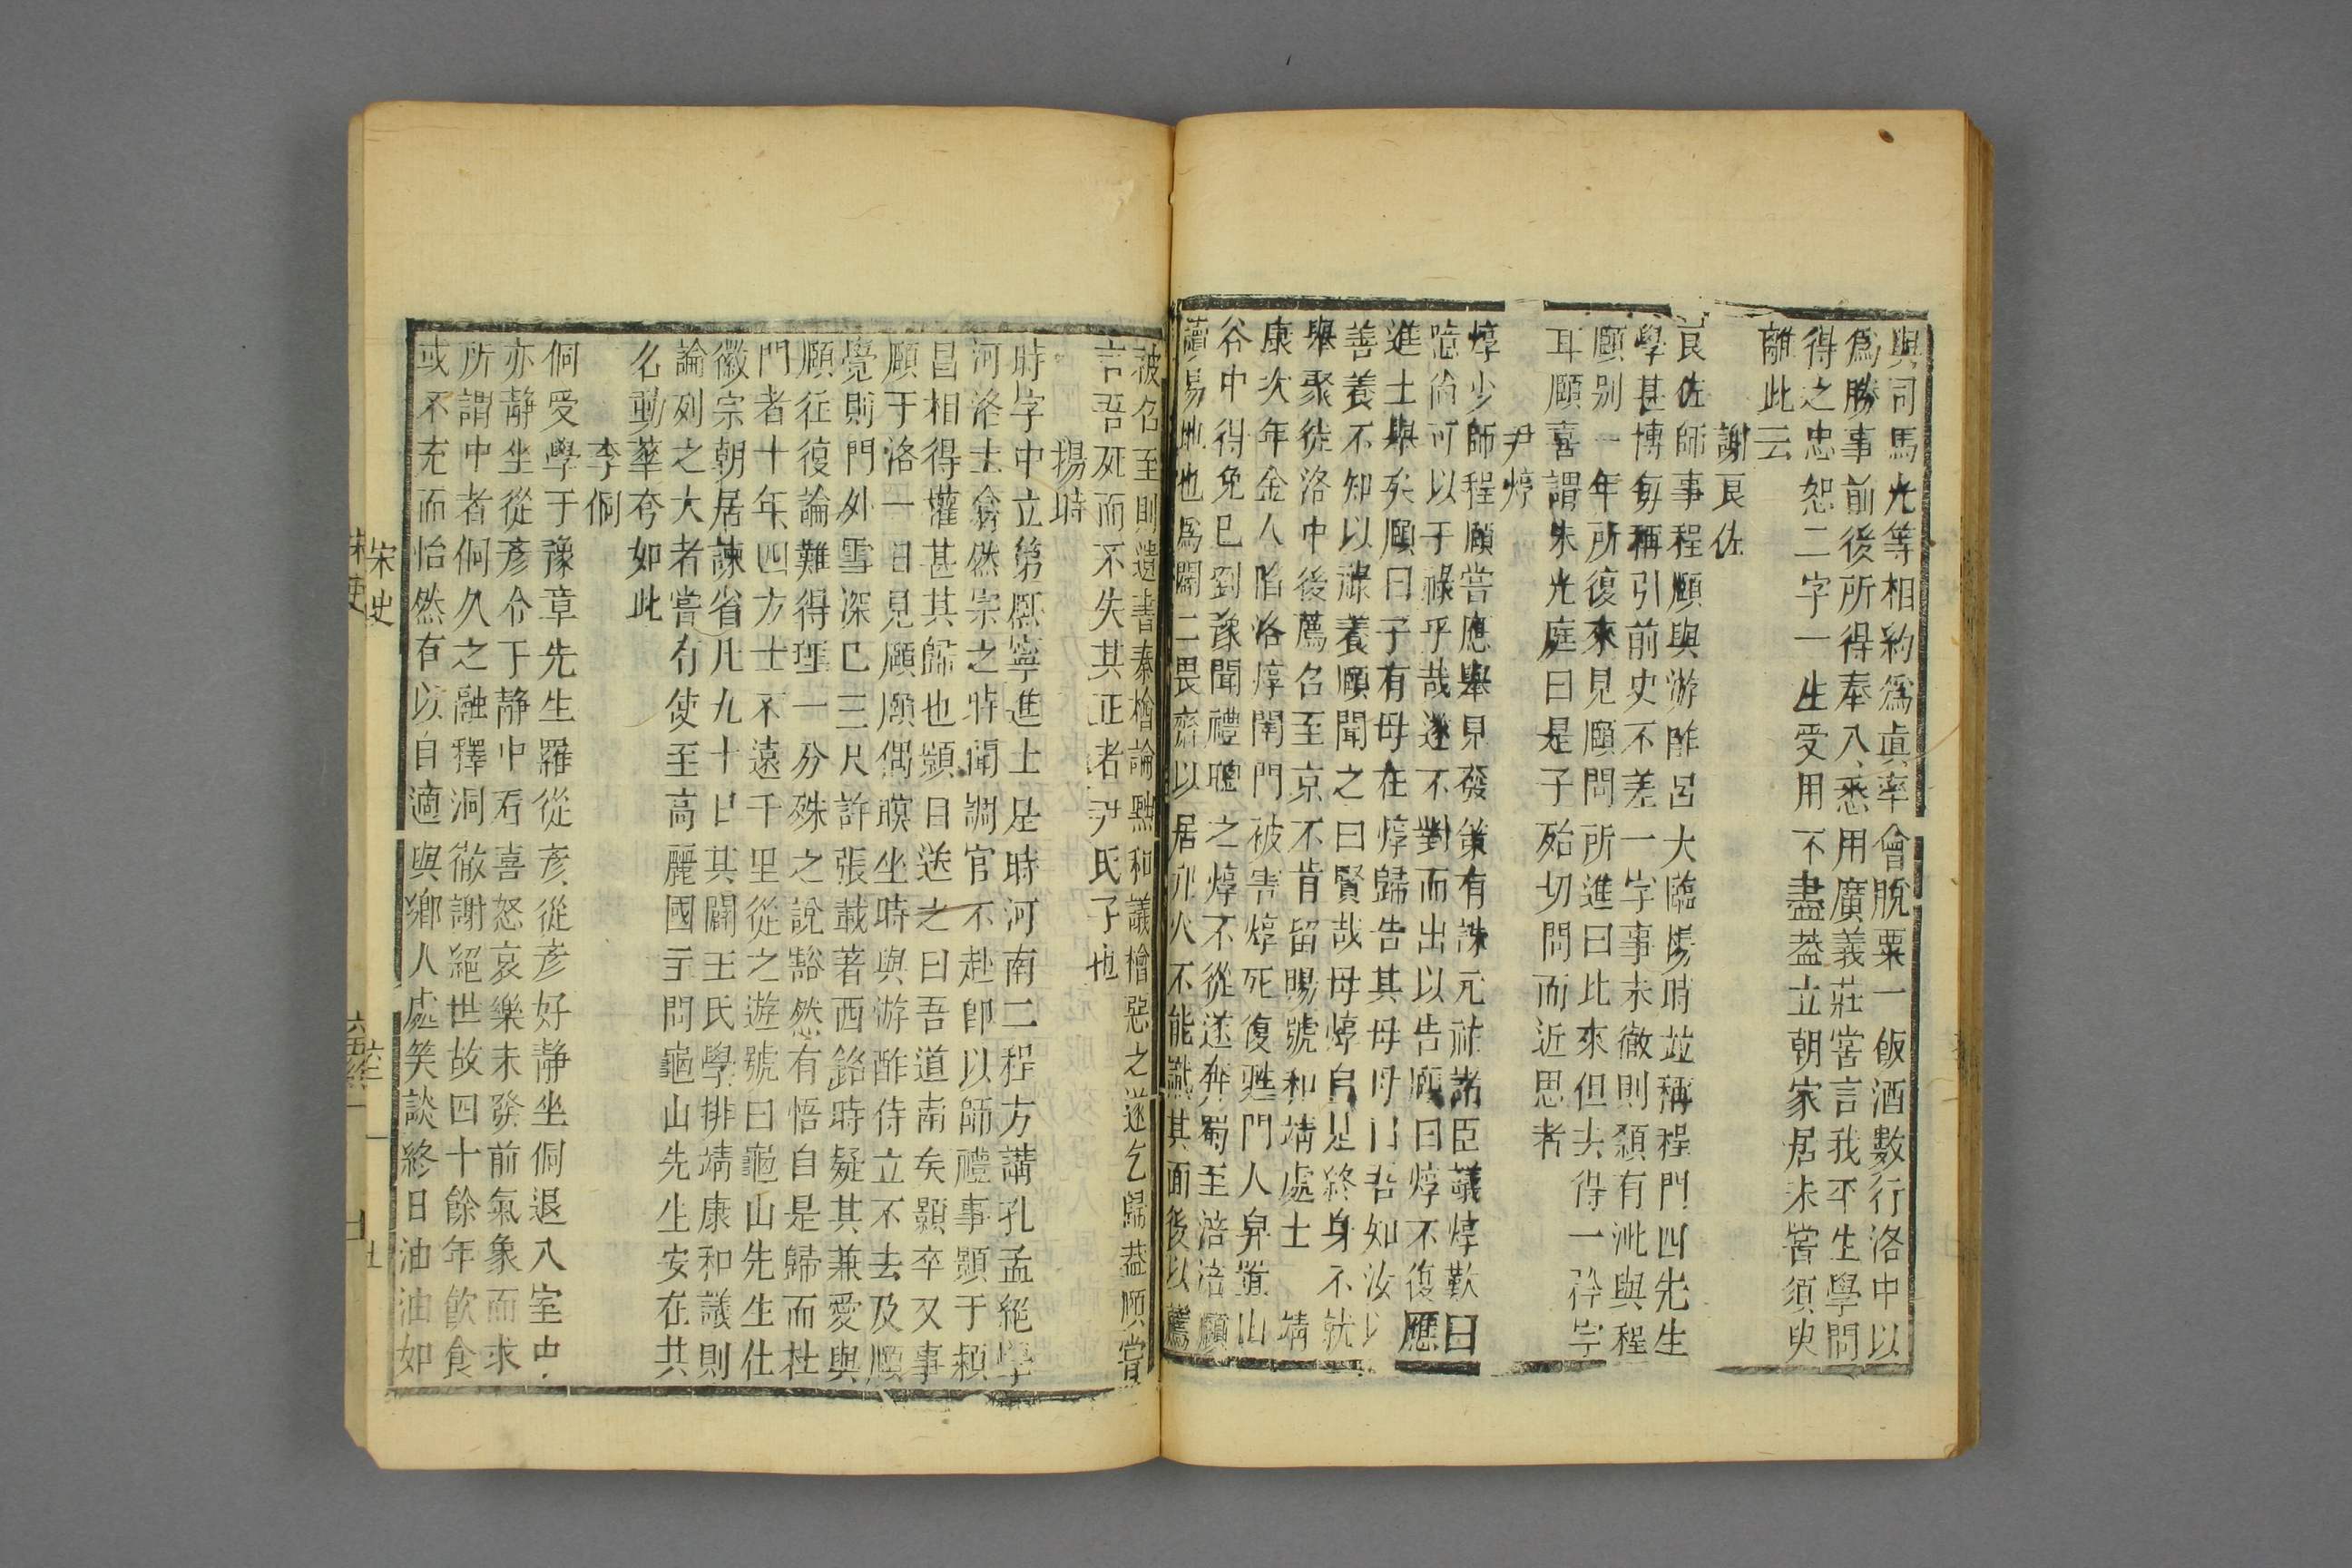 與司馬光等相約爲眞率會脫粟一飯酒數行洛中以
爲勝事前後所得奉入悉用廣義莊嘗言我平生學問
得之忠恕二字一生受用不盡葢立朝家居未嘗須臾
離此云
謝良佐
良佐師事程頤與游酢呂大臨楊時竝稱程門四先生
學甚博每稱引前史不差一字事未徹則顙有泚與程
頤别一年所復來見頤問所進曰比來但去得一矜字
耳頤喜謂朱光庭曰是子殆切問而近思者
尹焞
焞少師程頤嘗應舉見發策有誅元祐諸臣議焞歎曰
噫尙可以干祿乎哉遂不對而出以告頤曰焞不復應
進士舉矣頤曰子有母在焞歸告其母母曰吾知汝以
善養不知以祿養頤聞之曰賢哉母焞自是終身不就
舉聚徒洛中後薦召至京不肯留賜號和靖處士 靖
康次年金人陷洛焞闔門被害焞死復甦門人舁置山
谷中得免已劉豫聞禮聘之焞不從逃奔蜀至涪涪頤
讀易地也爲闢三畏齋以居邠人不能識其面後以薦
被召至則遺書秦檜論黜和議檜惡之遂乞歸葢頤嘗
言吾死而不失其正者尹氏子也
楊時
時字中立第熙寧進士是時河南二程方講孔孟絕學
河洛士翕然宗之時聞調官不赴卽以師禮事顥于潁
昌相得懽甚其歸也顥目送之曰吾道南矣顥卒又事
頤于洛一日見頤頤偶瞑坐時與游酢侍立不去及頤
覺則門外雪深已三尺許張載著西銘時疑其兼愛與
頤往復論難得理一分殊之說豁然有悟自是歸而杜
門者十年四方士不遠千里從之遊號曰龜山先生仕
徽宗朝居諫省凡九十日其闢王氏學排靖康和議則
論列之大者嘗有使至高麗國主問龜山先生安在其
名動華夸如此
李侗
侗受學于豫章先生羅從彥從彥好静坐侗退入室中
亦静坐從彥令于静中看喜怒哀樂未發前氣象而求
所謂中者侗久之融釋洞徹謝絕世故四十餘年飮食
或不充而怡然有以自適與鄉人處笑談終日油油如
宋史